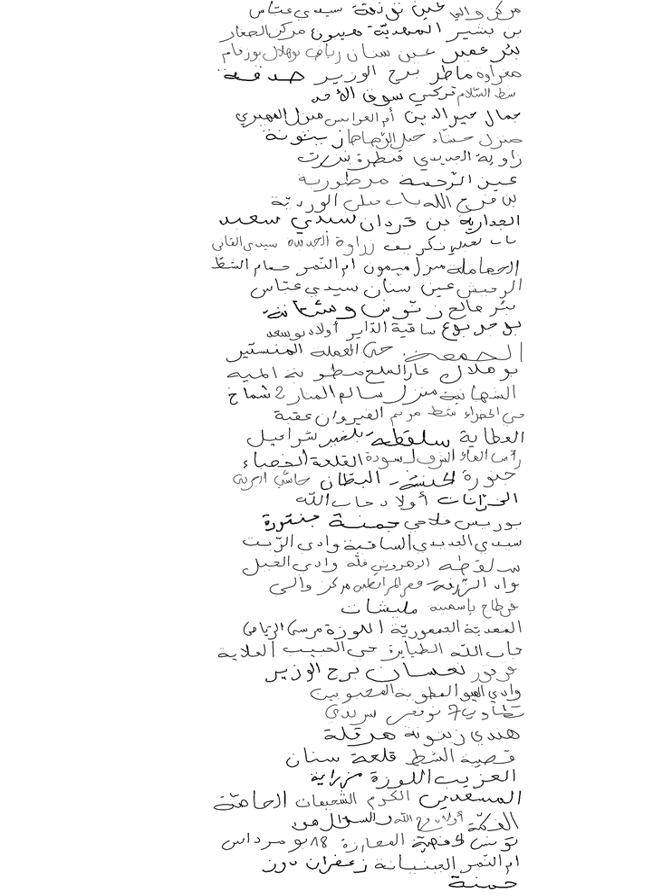 مركز والي عين نوزقة سيدي عباس
بن بشير المهدية هيبون مركز الصغار
بئر عمير عين سنان رياض بوهلال بوزمام
معراوة ماطر برج الوزير صدقة
شط السلام تركي سوق الأحد
جمال خير الدين أم العرايس منزل المهيري
منزل حشاد جبل الرصاص زيتونة
زاوية الجديدي قنطرة بنزرت
عين الرحمة مرطورية
بن فرج الله باب الورديّة
الجدارية بن قردان سيدي سعيد
باب تكريف زراوة الجديدة سيدي القاني
الحمامله منزل ميمون أم التمر حمام الشط
الرميش عين سنان سيدي عباس
بئر صالح زتوش وشتانة
بوجربوع ساقية الداير أولاد بوسعد
الجمعة حي العمله المنستير
بوهلال غار الملح مطوية المية
الشهانية منزل سالم المنار 2 شماخ
حي الخضراء شط مريم القيروان عقبة
العطاية سلقطة بلخير شراحيل
رأس السودة القلعة الخصباء
جنورة البطان حاشي الجربة
الخزانات أولاد جاب الله
بوريس فلاحي جمنة جنتورة
سيدي الجديدي الساقية وادي الزيت
سلقطة الزهروني قلة وادي الجبل
واد قصر المرابطين مركز والي
قرطاج ياسمينة مليشات
المهدية الجمهوريّة اللوزة مرسى الرياض
جاب الله الطيايرة حي الحبيب العلاية
قرقور نعسان برج الوزير
وادي
7 نوفمبر سريدي
هندي زيتونة هرقلة
قصيبة الشط قلعة سنان
العزيب اللوزة مزراية
المسعدين الكرم الشحيمات الحامة
الفكة أولاد فرج الله
تونس المغازة 18 بومرداس
أم التمر العينيانة زعفران دوز
جمنة